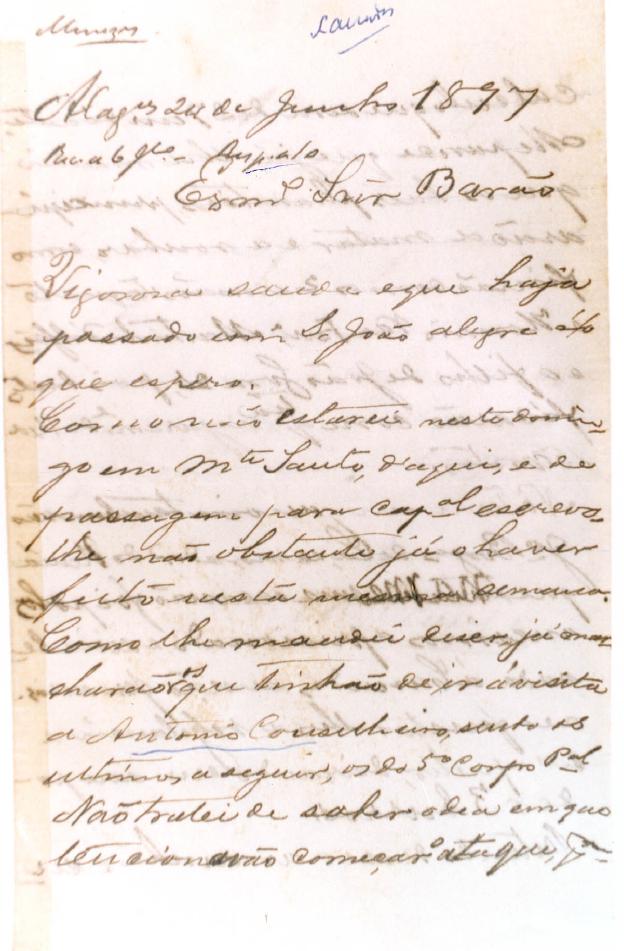 Menezes
Canudos
Alag.es 24 de Junho 1897
Exm.o Snr Barão
Vigorosa saude e que haja
passado um S. João alegre é o
que espero.
Como não estarei neste domin-
go em M.te Santo, d'aqui, e de
passagem para cap.al escrevo-
lhe não obstante já o haver
feito nesta mesma semana.
Como lhe mandei diser, já mar-
charão os que tinhão de ir á visita
a Antonio Conselheiro, sendo os
ultimos a seguir, os do 5º Corpo P.al
Não tratei de saber o dia em que
tencionavão começar o ataque,